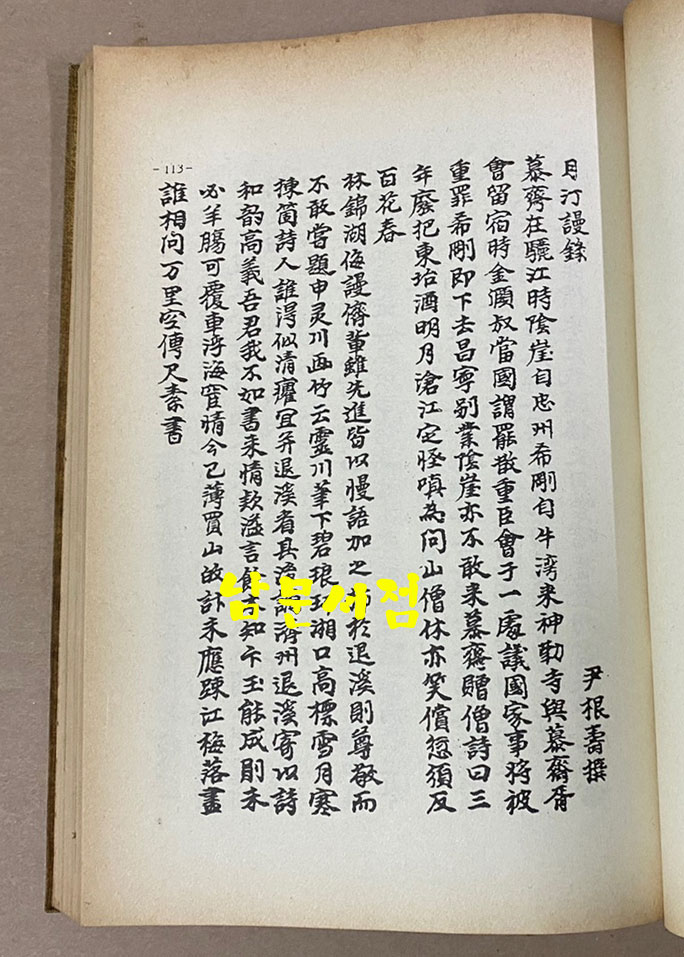 月汀謾錄
尹根壽撰
慕齋在驪江時陰崖自忠州希剛自牛湾来神勒寺與慕齋胥
會留宿時金灝叔當國謂罷散重臣會于一處議國家事将被
重罪希剛即下去昌寧别業陰崖亦不敢来慕齋贈僧詩曰三
年廢把東坮酒明月滄江定恠嗔為问山僧休亦笑償愆須及
百花春
林錦湖侮謾儕輩雖先進皆以慢語加之 於退溪則尊敬而
不敢嘗題申灵川画竹云靈川筆下碧琅玕湖口高標雪月寒
揀箇詩人誰淂似清癯冝并退溪看其 謫濟州退溪寄以詩
和韵高義吾君我不如書来情款溢言餘 知卞玉能成刖未
必羊腸可覆車 海宦情今已薄買山故計未應踈江梅落盡
誰相问万里空傳尺素書
-113-
남문서점